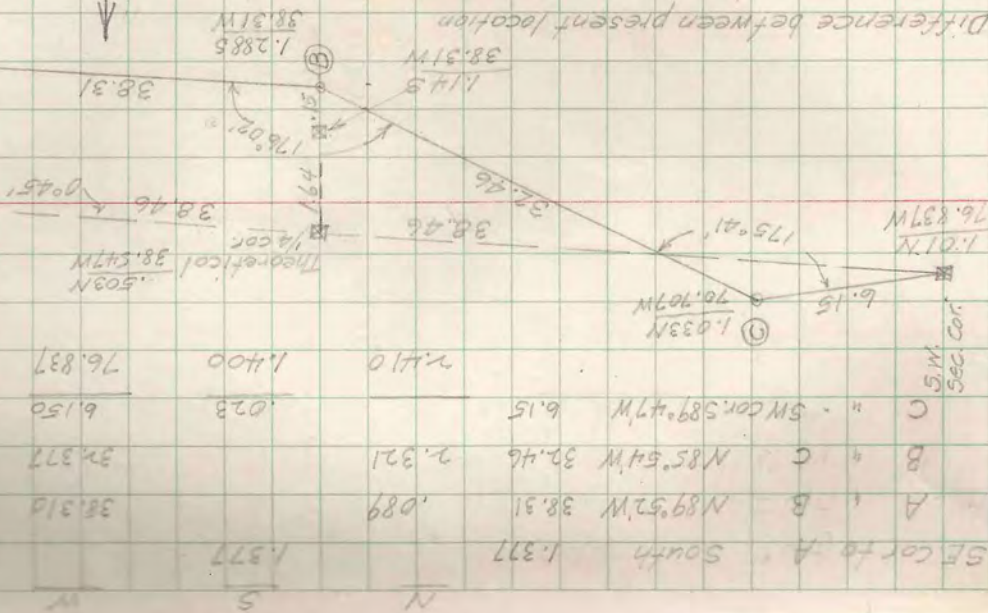 N S W
SE Cor to A South 1.377 1.377
A " B N89°52'W 38.31 .089 38.310
B " C N85°54'W 32.46 2.321 32.377
C " SW cor. S89°47'W 6.15 .023 6.150
2.410 1.400 76.837
S.W.
Sec. Cor.
1.01N
76.837W
6.15
C
1.033N
70.707W
175°41'
32.46
38.46
Theoretical
1/4 cor.
.503N
38.547W
38.46
0°45'
1.64
.15
176°02'
1.143
38.31W
B
1.288S
38.31W
38.31
Difference between present location